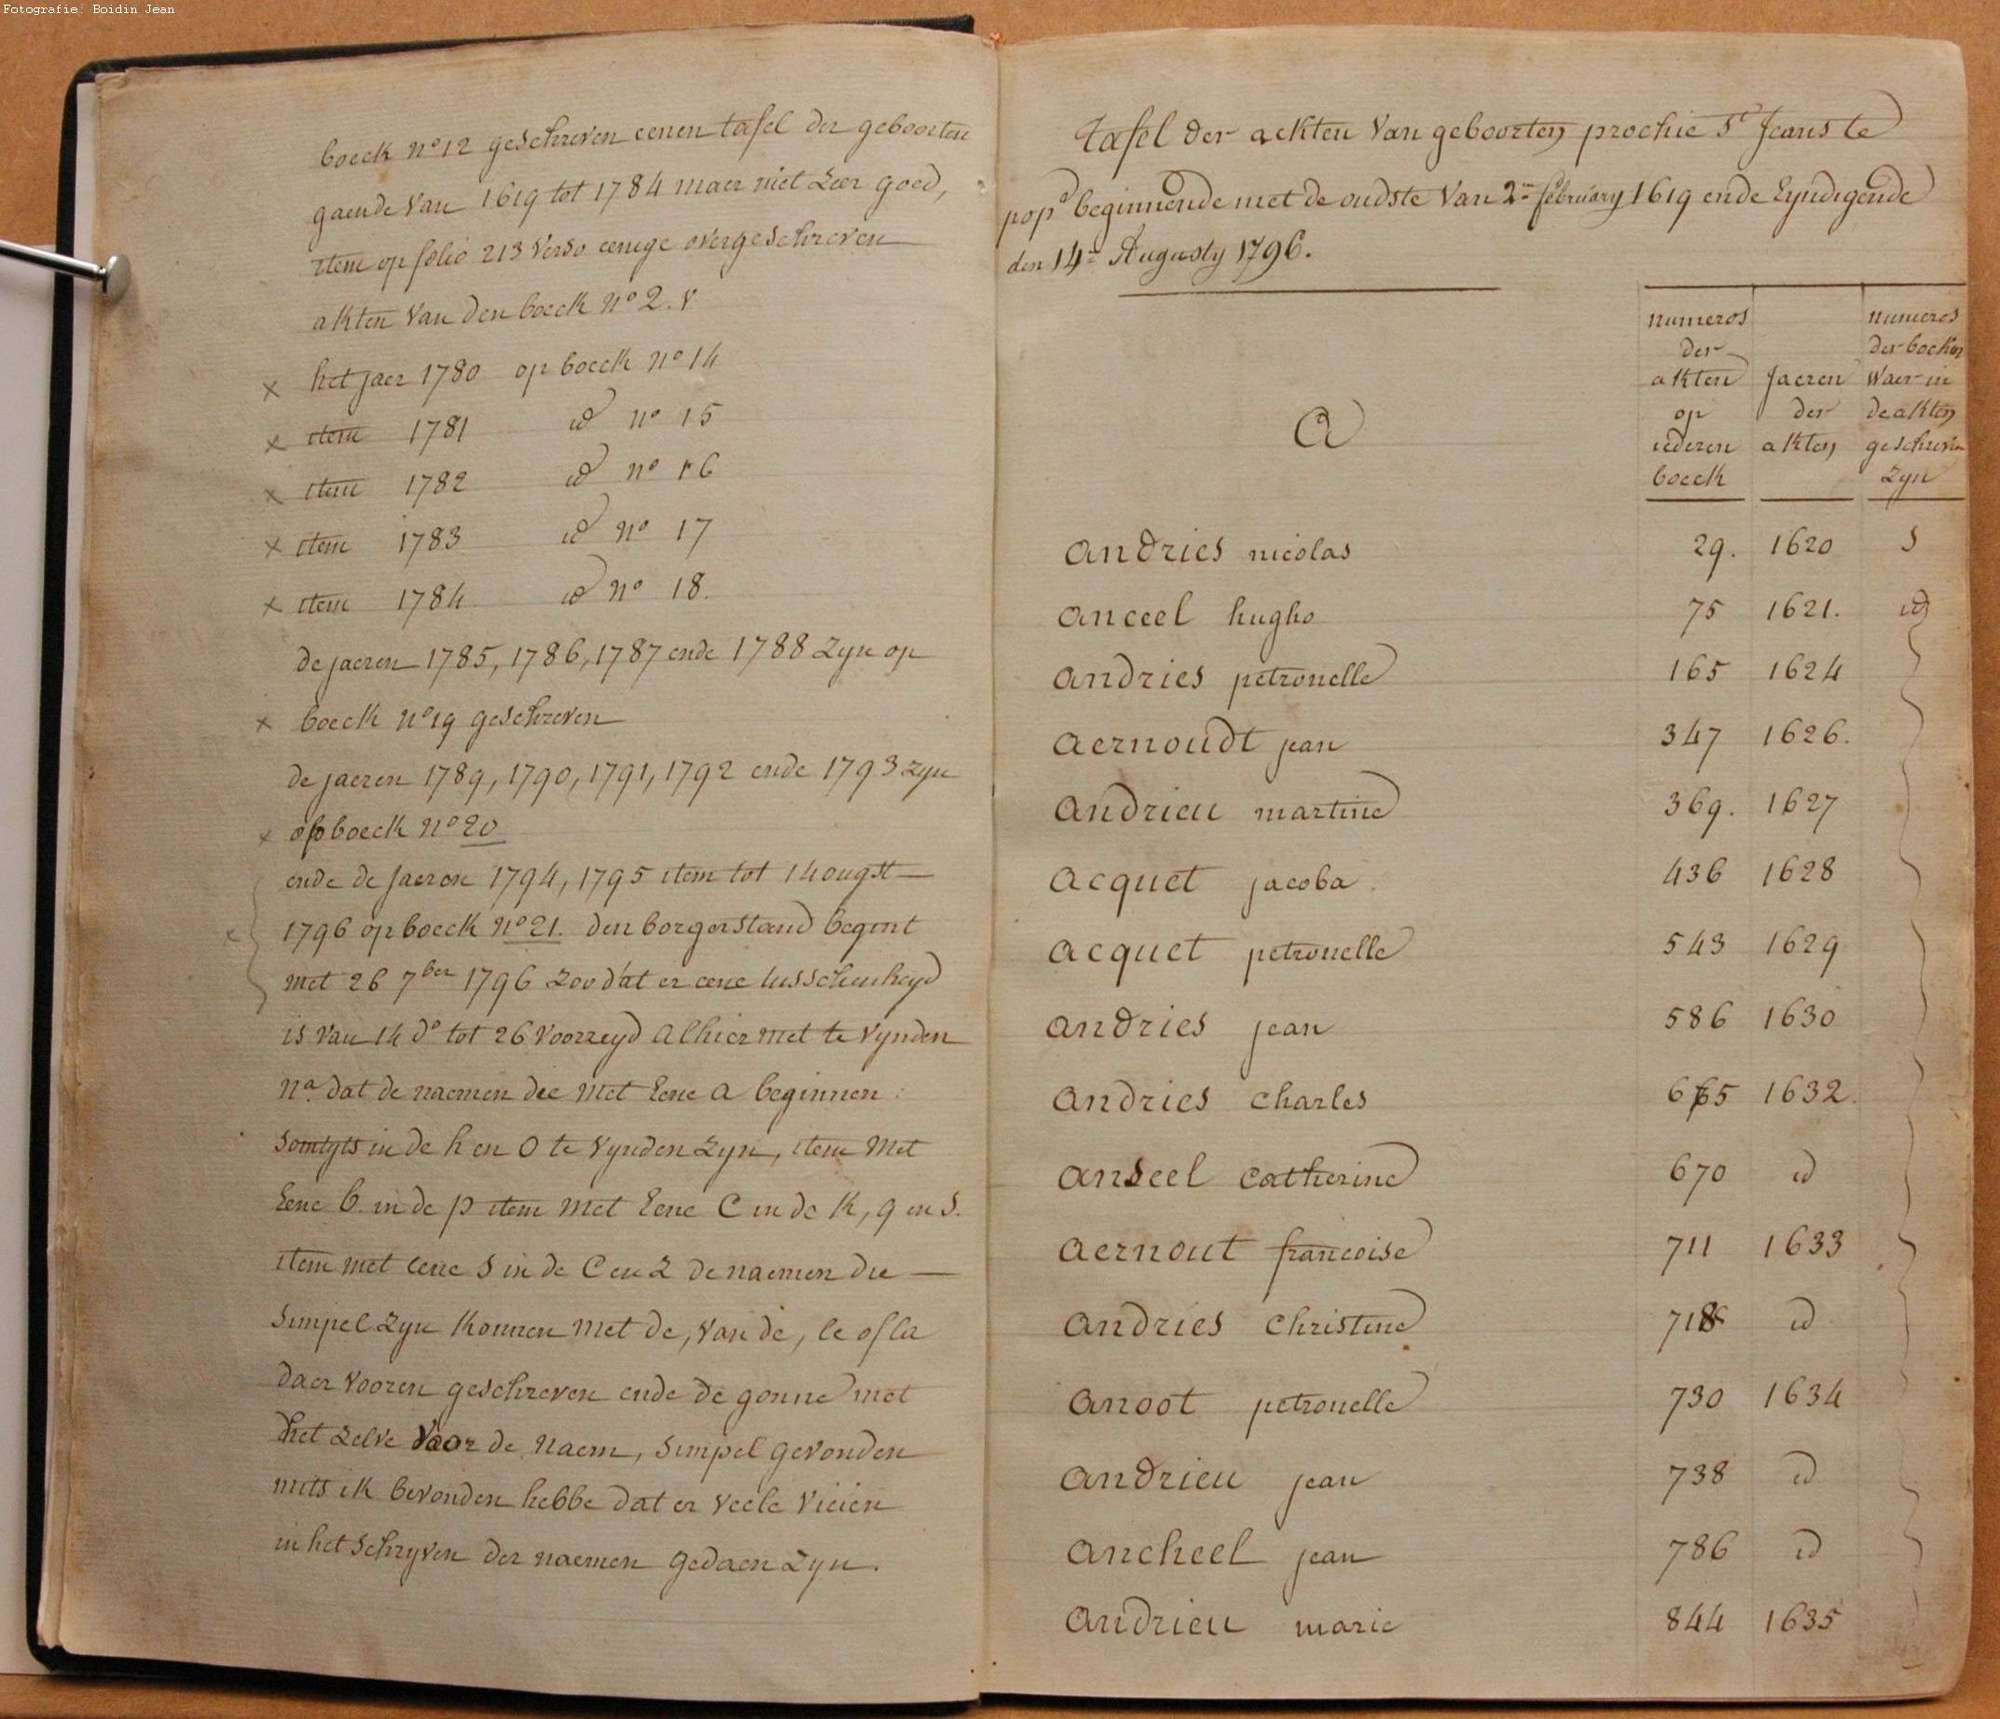 Fotografie: Boidin Jean
boeck nº 12 geschreven eenen tafel der geboorten
gaende van 1619 tot 1784 maer niet zeer goed,
item op folio 213 verso eenige overgeschreven
akten van den boeck nº 2. v
x het jaer 1780 op boeck nº 14
x item 1781 id nº 15
x item 1782 id nº 16
x item 1783 id nº 17
x item 1784 id nº 18.
de jaeren 1785, 1786, 1787 ende 1788 zyn op
x boeck nº 19 geschreven
de jaeren 1789, 1790, 1791, 1792 ende 1793 zyn
x op boeck nº 20
ende de jaeren 1794, 1795 item tot 14 ougst
x 1796 op boeck nº 21. den borgerstand begint
met 26 7ber 1796 zoo dat er eene tusschenheyd
is van 14 dº tot 26 voorzeyd alhier met te vynden
Na. dat de naemen die met eene a beginnen
somtyts in de h en o te vynden zyn, item met
eene b. in de p item met eene C in de k, q en s.
item met eene s in de C en z de naemen die
simpel zyn konnen met de, van de, le of la
daer vooren geschreven ende de gonne met
het zelve voor de naem, simpel gevonden
mits ik bevonden hebbe dat er veele vicien
in het schryven der naemen gedaen zyn.
tafel der ackten van geboorten prochie St Jeans te
popd beginnende met de oudste van 2en february 1619 ende eyndigende
den 14en Augusty 1796.
numeros der akten op iederen boeck
Jaeren der akten
numeros der boeken waer in de akten geschreven zyn
a
andries nicolas 29. 1620 5
anceel hugho 75 1621. id
andries petronelle 165 1624
aernoudt jean 347 1626.
andrieu martine 369. 1627
acquet jacoba 436 1628
acquet petronelle 543 1629
andries jean 586 1630
andries charles 665 1632.
anseel catherine 670 id
aernout francoise 711 1633
andries christine 718 id
anoot petronelle 730 1634
andrieu jean 738 id
ancheel jean 786 id
andrieu marie 844 1635